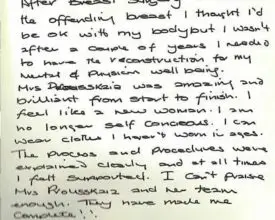 After Breast Surgery
the offending breast I thought I'd
be ok with my body but I wasn't
after a couple of years I needed
to have the reconstruction for my
Mental & Physical well being.
Mrs Prousskaia was amazing and
brilliant from start to finish. I
feel like a new woman. I am
no longer self concious. I can
wear clothes I haven't worn in ages.
The process and procedures were
explained clearly and at all times
I felt supported. I can't praise
Mrs Prousskaia and her team
enough. They have made me
Complete!!.